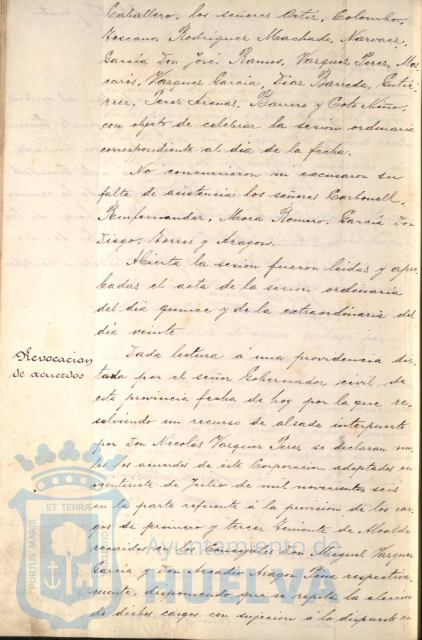 Caballero, los señores Ortiz, Colombo,
Toscano, Rodriguez Machado, Narvaez,
García Don José, Ramos, Vazquez Perez, Mas-
carós, Vazquez García, Diaz Barreda, Gutie-
rrez, Perez Arenas, Barrero y Coto Mño,
con objeto de celebrar la sesion ordinaria
correspondiente al dia de la fecha.
No concurrieron ni excusaron su
falta de asistencia los señores Carbonell,
Renfernandez, Mora Romero, García Don
Diego, Torres y Aragon.
Abierta la sesion fueron leidas y apro-
badas el acta de la sesion ordinaria
del dia quince y de la extraordinaria del
dia veinte
Revocacion
de acuerdos
Dada lectura á una providencia dic-
tada por el señor Gobernador civil de
esta provincia fecha de hoy por la que re-
solviendo un recurso de alzada interpuesto
por Don Nicolás Vazquez Perez se declaran nu-
los los acuerdos de esta Corporacion adoptados en
veintisiete de Julio de mil novecientos seis
en la parte referente á la provision de los car-
gos de primero y tercer Teniente de Alcalde
recaidos en los Concejales Don Miguel Vazquez
García y Don Arcadio Aragon Peña respectiva-
mente, disponiendo que se repita la eleccion
de dichos cargos con sujecion á lo dispuesto en
PORTUS MARIS ET TERRÆ CUSTODIA
Ayuntamiento de
HUELVA